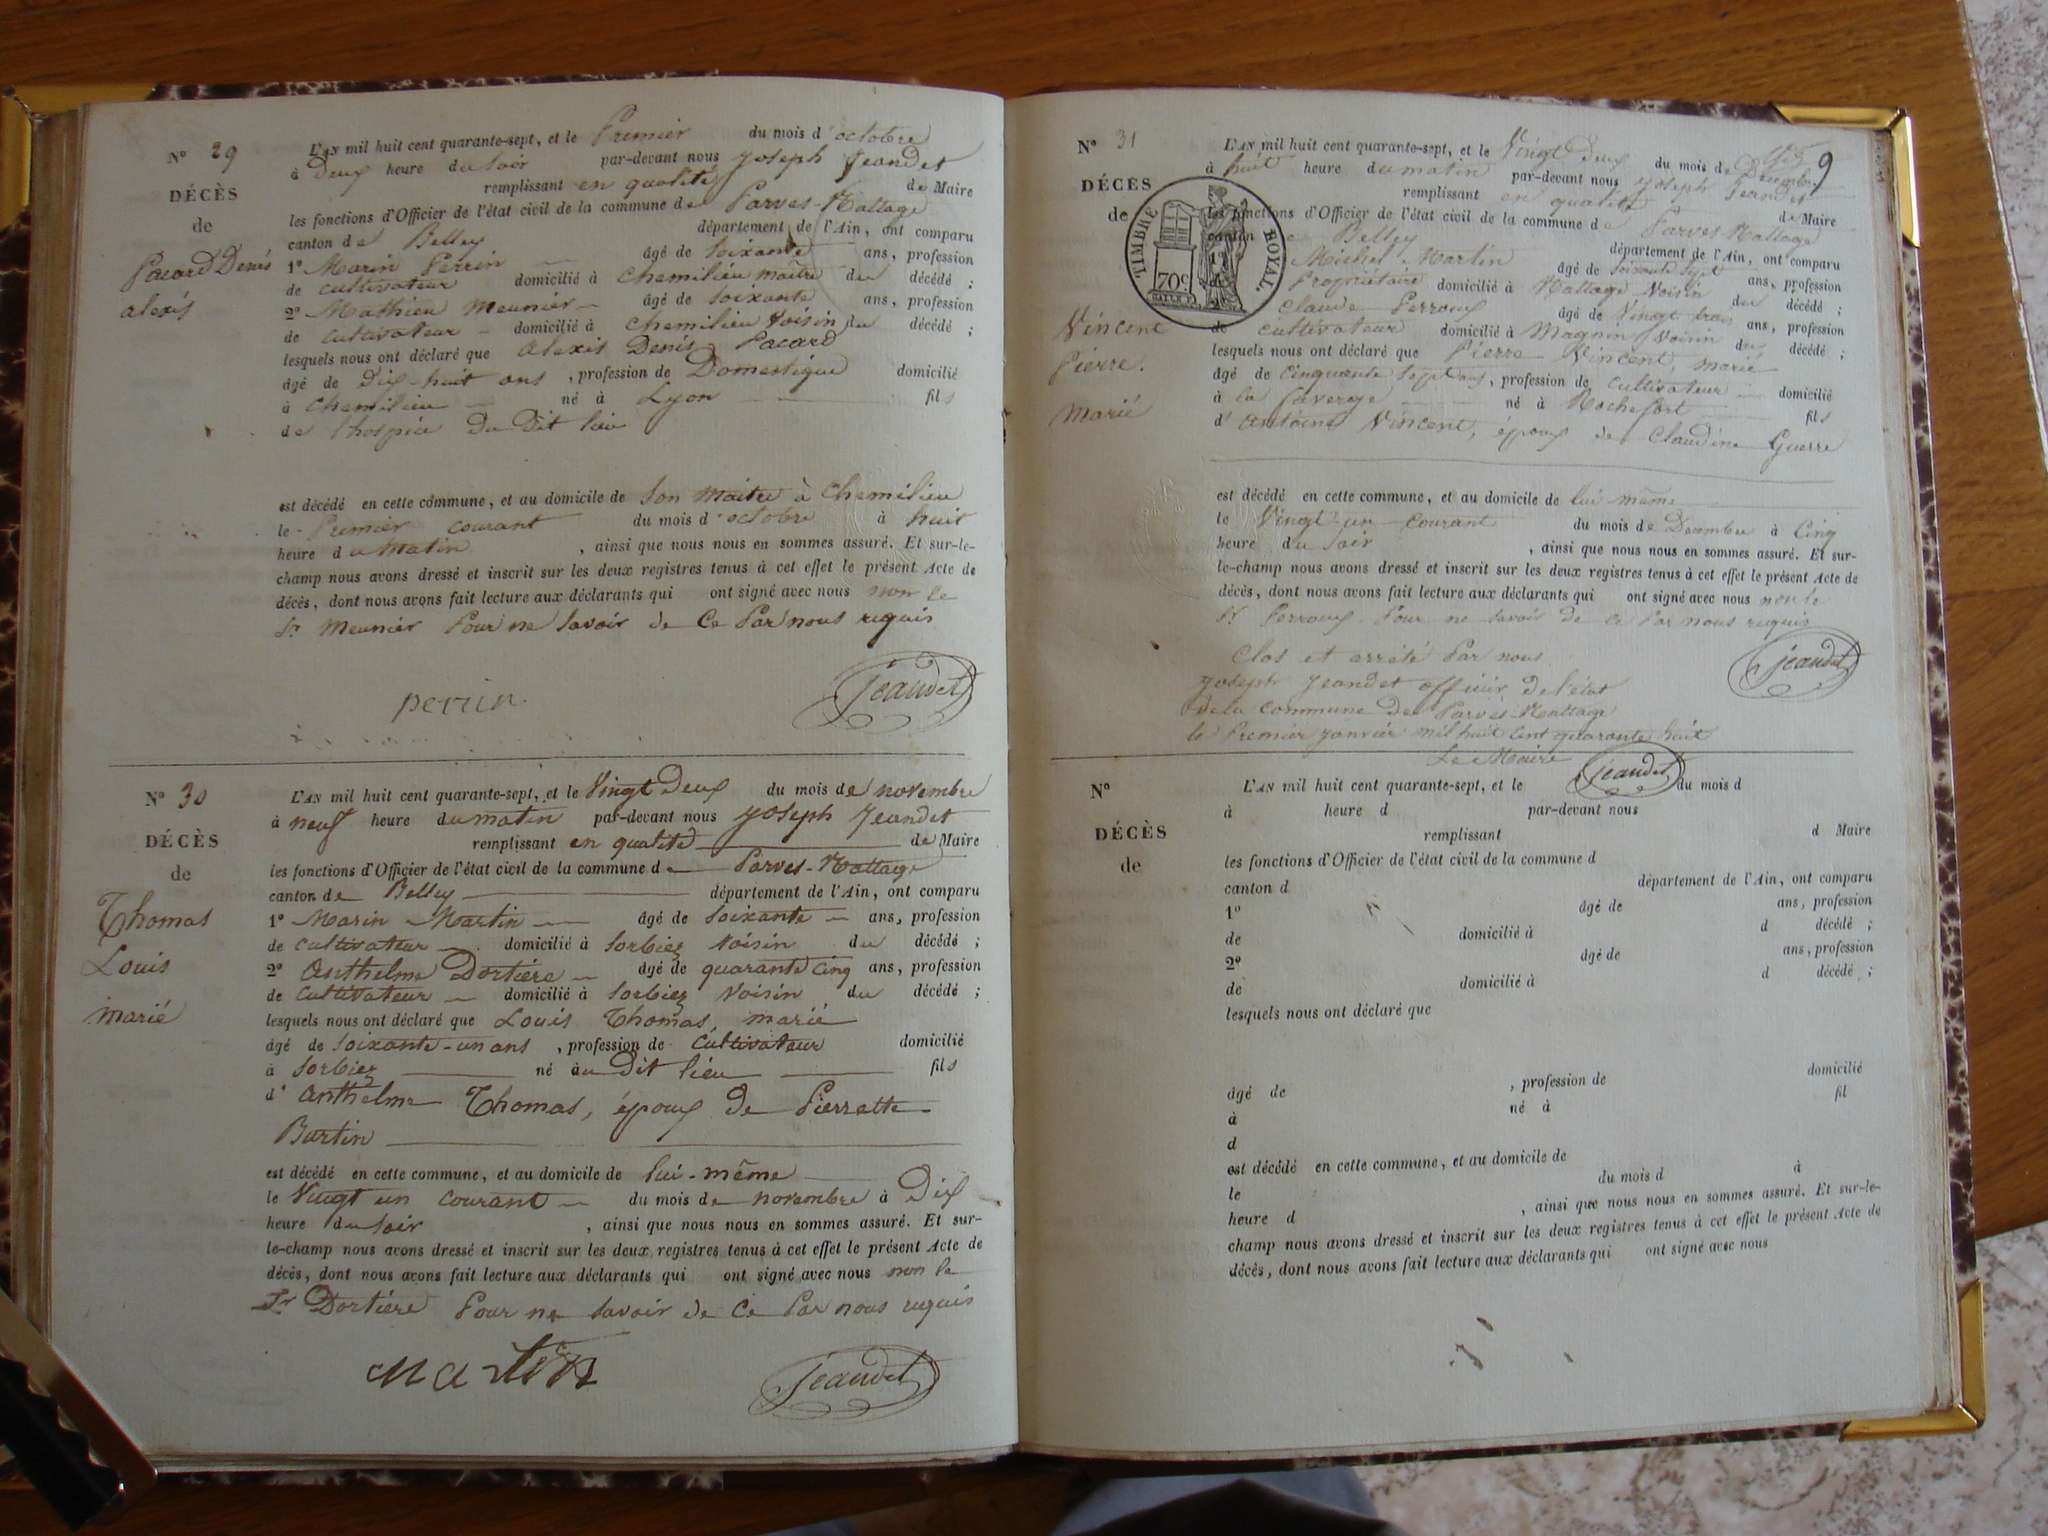 N° 29
DÉCÈS
de
Pacard Denis
alexis
L'AN mil huit cent quarante-sept, et le Premier du mois d'octobre
à Deux heure du soir par-devant nous Joseph Jeandet
remplissant en qualité de Maire
les fonctions d'Officier de l'état civil de la commune de Parves-Nattage
canton de Belley département de l'Ain, ont comparu
1° Marin Perrin âgé de soixante ans, profession
de cultivateur domicilié à Chemilieu maître du décédé ;
2° Mathieu Meunier âgé de soixante ans, profession
de cultivateur domicilié à Chemilieu Voisin du décédé ;
lesquels nous ont déclaré que Alexis Denis Pacard
âgé de Dix-huit ans , profession de Domestique domicilié
à Chemilieu né à Lyon fils
de l'hospice Du Dit lieu
est décédé en cette commune, et au domicile de son maitre à Chemilieu
le Premier courant du mois d'octobre à huit
heure du matin , ainsi que nous nous en sommes assuré. Et sur-le-
champ nous avons dressé et inscrit sur les deux registres tenus à cet effet le présent Acte de
décès, dont nous avons fait lecture aux déclarants qui ont signé avec nous non le
Sr Meunier Pour ne savoir de Ce Par nous requis
perrin
Jeandet
N° 30
DÉCÈS
de
Thomas
Louis
marié
L'AN mil huit cent quarante-sept, et le Vingt Deux du mois de novembre
à neuf heure du matin par-devant nous Joseph Jeandet
remplissant en qualité de Maire
les fonctions d'Officier de l'état civil de la commune de Parves-Nattage
canton de Belley département de l'Ain, ont comparu
1° Marin Martin âgé de soixante ans, profession
de cultivateur domicilié à Sorbiez Voisin du décédé ;
2° Anthelme Dortiére âgé de quarante cinq ans, profession
de cultivateur domicilié à Sorbiez Voisin du décédé ;
lesquels nous ont déclaré que Louis Thomas, marié
âgé de soixante-un ans , profession de cultivateur domicilié
à Sorbiez né au Dit lieu fils
d'Anthelme Thomas, époux de Pierrette
Burtin
est décédé en cette commune, et au domicile de lui-même
le Vingt un courant du mois de novembre à Dix
heure du soir , ainsi que nous nous en sommes assuré. Et sur-
le-champ nous avons dressé et inscrit sur les deux registres tenus à cet effet le présent Acte de
décès, dont nous avons fait lecture aux déclarants qui ont signé avec nous non le
Sr Dortiére Pour ne savoir de Ce Par nous requis
Martin
Jeandet
9
N° 31
DÉCÈS
de
TIMBRE ROYAL.
70c
Vincent
Pierre.
marié
L'AN mil huit cent quarante-sept, et le Vingt Deux du mois de Décembre
à huit heure du matin par-devant nous Joseph Jeandet
remplissant en qualité de Maire
les fonctions d'Officier de l'état civil de la commune de Parves-Nattage
canton de Belley département de l'Ain, ont comparu
Michel Martin âgé de soixante sept ans, profession
Propriétaire domicilié à Nattage Voisin du décédé ;
Claude Perroux âgé de Vingt trois ans, profession
de cultivateur domicilié à Magnin Voisin du décédé ;
lesquels nous ont déclaré que Pierre Vincent, marié
âgé de cinquante sept ans, profession de cultivateur domicilié
à la né à Rochefort fils
d'Antoine Vincent, époux de Claudine Guerre
est décédé en cette commune, et au domicile de lui même
le Vingt-un courant du mois de Décembre à Cinq
heure du soir , ainsi que nous nous en sommes assuré. Et sur-
le-champ nous avons dressé et inscrit sur les deux registres tenus à cet effet le présent Acte de
décès, dont nous avons fait lecture aux déclarants qui ont signé avec nous non le
Sr Perroux. Pour ne savoir de ce Par nous requis
Jeandet
Clos et arrété Par nous
Joseph Jeandet officier de l'état
de la commune de Parves-Nattage
le Premier janvier mil huit cent quarante huit
Le Maire
Jeandet
N°
DÉCÈS
de
L'AN mil huit cent quarante-sept, et le du mois d
à heure d par-devant nous
remplissant d Maire
les fonctions d'Officier de l'état civil de la commune d
canton d département de l'Ain, ont comparu
1° âgé de ans, profession
de domicilié à d décédé ;
2° âgé de ans, profession
de domicilié à d décédé ;
lesquels nous ont déclaré que
âgé de , profession de domicilié
à né à fil
d
est décédé en cette commune, et au domicile de
le du mois d à
heure d , ainsi que nous nous en sommes assuré. Et sur-le-
champ nous avons dressé et inscrit sur les deux registres tenus à cet effet le présent Acte de
décès, dont nous avons fait lecture aux déclarants qui ont signé avec nous